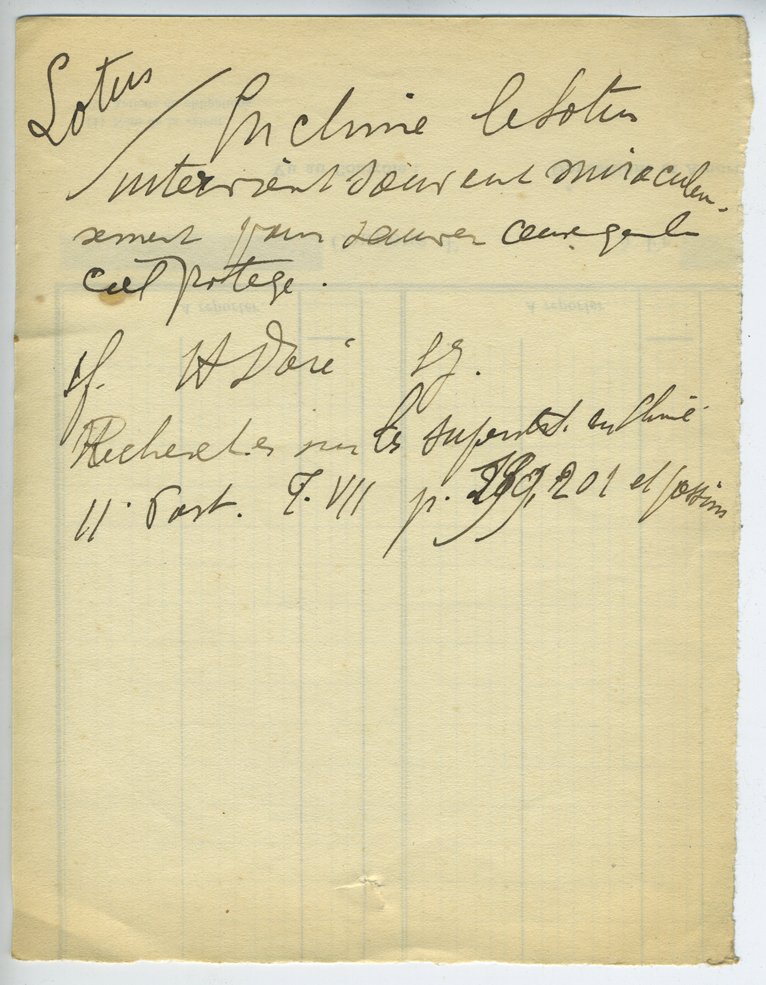 Lotus
En chine le lotus
intervient souvent miraculeu-
sement pour sauver ceux que le
ciel protege.
cf. H Doré S.J.
Recherches sur les superst. en Chine
IIe Part. T. VII p. 201 et passim
A reporter
A reporter